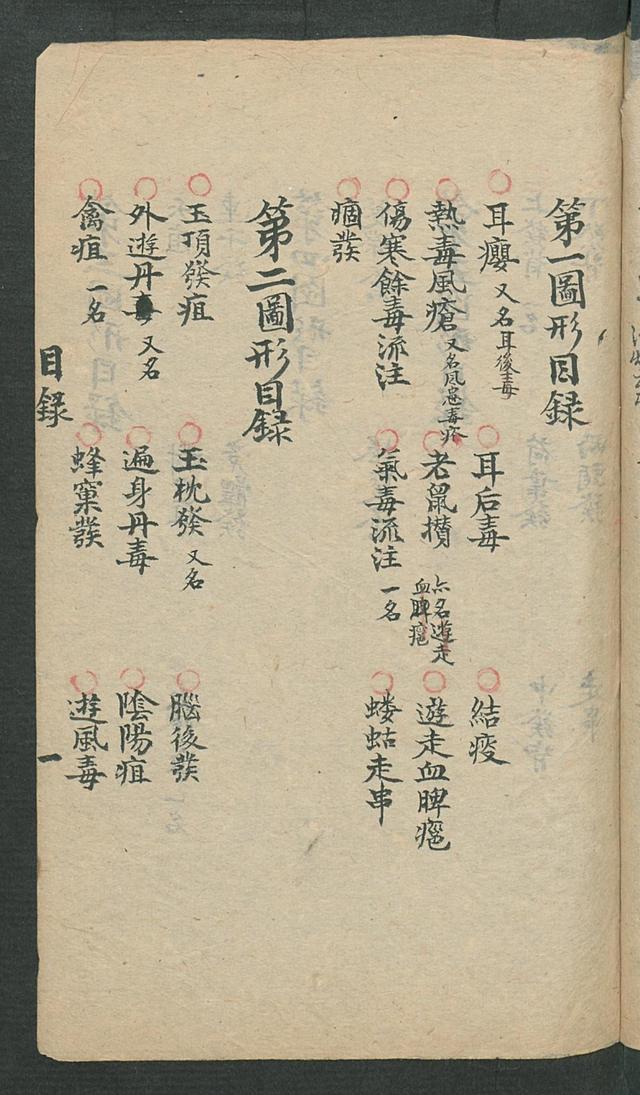 第一圖形目錄
耳癭 又名耳後毒 耳后毒 結疫
熱毒風瘡 又名風惡毒疹 老鼠攢 亦名遊走血脾癋 遊走血脾癋
傷寒餘毒流注 氣毒流注 一名 蝼蛄走串
痼發
第二圖形目錄
玉頂發疽 玉枕發 又名 腦後發
外遊丹毒 又名 遍身丹毒 陰陽疽
禽疽 一名 蜂窠發 遊風毒
目錄 一